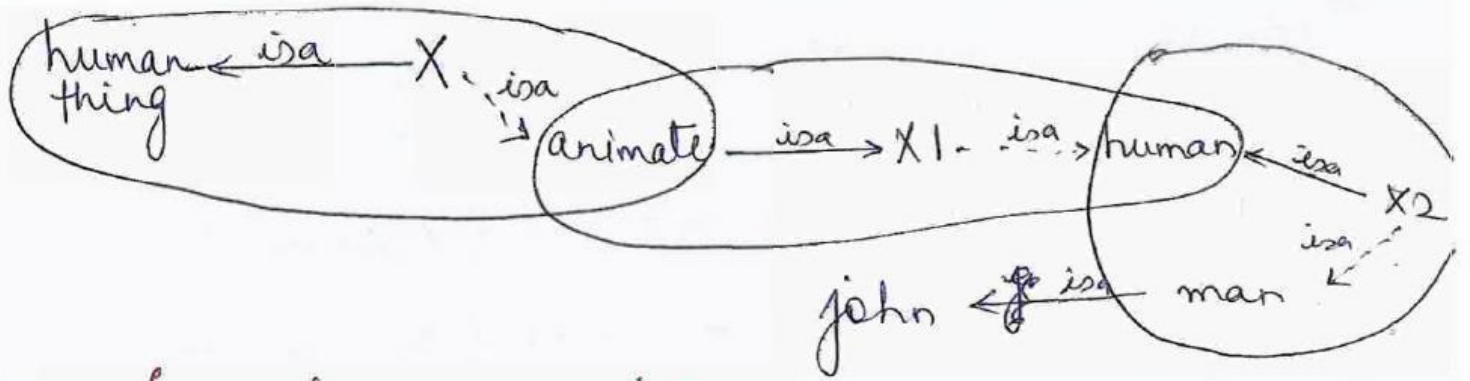 human isa X
thing isa
animate isa X1 isa human isa
X2
isa
john isa man